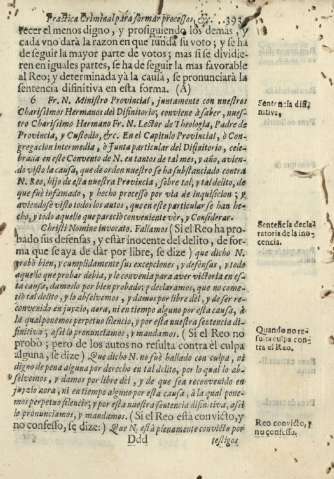 Practica Criminal para formar processos, &c. 393
recer el menos digno, y prosiguiendo los demas, y
cada vno dará la razon en que funda su voto; y se ha
de seguir la mayor parte de votos; mas si se dividie
ren en iguales partes, se ha de seguir la mas favorable
al Reo; y determinada yà la causa, se pronunciarà la
sentencia difinitiva en esta forma. (A)
6 Fr. N. Ministro Provincial, juntamente con nuestros
Charissimos Hermanos del Difinitorio, conviene à saber, nues-
tro Charissimo Hermano Fr. N. Lector de Theologia, Padre de
Provincia, y Custodio, &c. En el Capitulo Provincial, ò Con-
gregacion intermedia, ò Junta particular del Difinitorio, cele-
brada en este Convento de N. en tantos de tal mes, y año, avien-
do visto la causa, que de orden nuestro se ha substanciado contra
N. Reo, hijo de esta nuestra Provincia, sobre tal, y tal delito, de
que fuè infamado, y hecho processo por via de inquisicion; y
aviendose visto todos los autos, que en este particular se han he-
cho, y todo aquello que pareciò conveniente vèr, y Considerar.
Christi Nomine invocato. Fallamos (Si el Reo ha pro-
bado sus defensas, y estàr inocente del delito, de for-
ma que se aya de dàr por libre, se dize) que dicho N.
probò bien, y cumplidamente sus excepciones, y defensas, y todo
aquello que probar debia, y le convenia para aver victoria en es-
ta causa, damoslo por bien probado; y declaramos, que no come-
tiò tal delito, y lo absolvemos, y damos por libre dèl, y de ser re-
convenido en juyzio, aora, ni en tiempo alguno por esta causa, à
la qual ponemos perpetuo silencio, y por esta nuestra sentencia di-
finitiva, assi lo pronunciamos, y mandamos. (Si el Reo no
probò; pero de los autos no resulta contra èl culpa
alguna, se dize) Que dicho N. no fuè hallado con culpa, ni
digno de pena alguna por derecho en tal delito, por lo qual lo ab-
solvemos, y damos por libre dèl, y de que sea reconvenido en
juyzio aora, ni en tiempo alguno por esta causa, à la qual pone-
mos perpetuo silencio; y por esta nuestra sentencia difinitiva, assi
lo pronunciamos, y mandamos. (Si el Reo està convicto, y
no confesso, se dize:) Que N. està plenamente convicto por
Ddd testigos
Sentencia difi-
nitiva.
Sentencia decla-
ratoria de la ino-
cencia.
Quando no re-
sulta culpa con-
tra el Reo.
Reo convicto, y
no confesso.